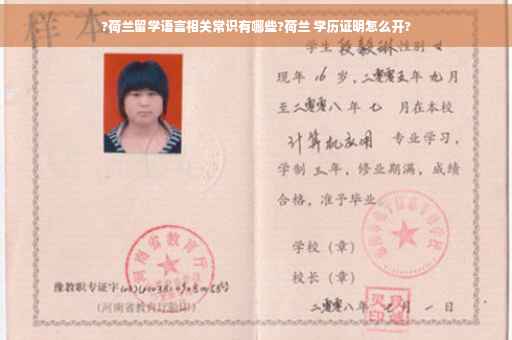 ?荷兰留学语言相关常识有哪些?荷兰 学历证明怎么开?
样本
学生 段毅琳 性别 女
现年 16 岁，二零零五年 九月
至二零零八年 七 月在本校
计算机应用 专业学习，
学制 三 年，修业期满，成绩
合格，准予毕业
学校（章）
校长（章）
二零零八年 七 月 一 日
河南省教育厅
豫教职专证字
（河南省教育厅验印）